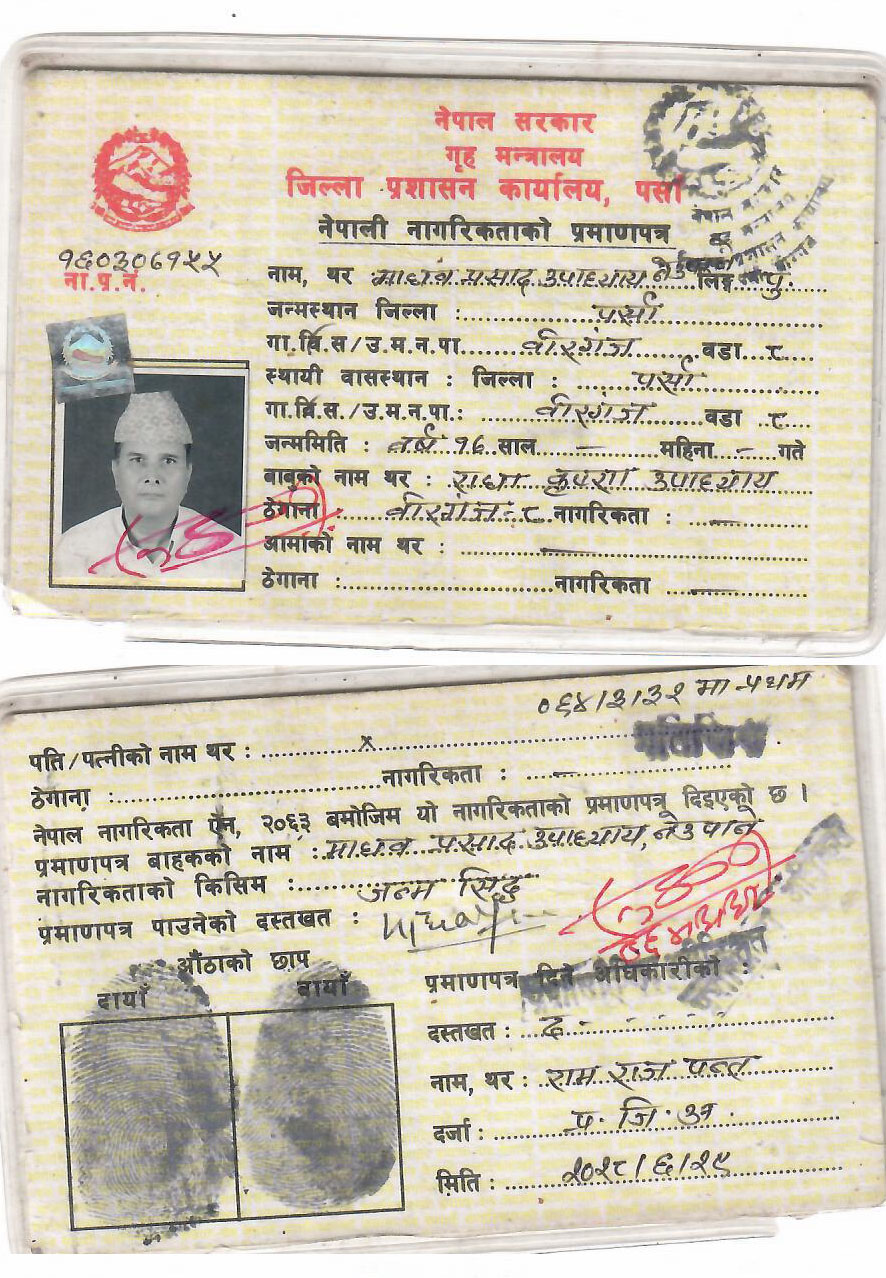 नेपाल सरकार
गृह मन्त्रालय
जिल्ला प्रशासन कार्यालय, पर्सा
नेपाली नागरिकताको प्रमाणपत्र
ना.प्र.नं.
नाम, थर : माधव प्रसाद उपाध्याय, लिङ्ग पु.
जन्मस्थान जिल्ला : पर्सा
गा.वि.स/उ.म.न.पा. वीरगंज वडा ८
स्थायी वासस्थान : जिल्ला : पर्सा
गा.वि.स./उ.म.न.पा.: वीरगंज वडा ८
जन्ममिति : वर्ष १६ साल - महिना - गते
बाबुको नाम थर : राधा कृष्ण उपाध्याय
ठेगाना : वीरगंज-८ नागरिकता : -
आमाको नाम थर : -
ठेगाना : नागरिकता -
०६४/३/३२ मा प्रथम
प्रतिलिपि
पति/पत्नीको नाम थर : x
ठेगाना : नागरिकता : -
नेपाल नागरिकता ऐन, २०६३ बमोजिम यो नागरिकताको प्रमाणपत्र दिइएको छ ।
प्रमाणपत्र बाहकको नाम : माधव प्रसाद उपाध्याय, नेउपाने
नागरिकताको किसिम : जन्म सिद्ध
प्रमाणपत्र पाउनेको दस्तखत :
औंठाको छाप
दायाँ बायाँ
प्रमाणपत्र दिने अधिकारीको :
दस्तखत : द-
नाम, थर : राम राज पन्त
दर्जा : प्र. जि. अ.
मिति : २०२८/६/२९